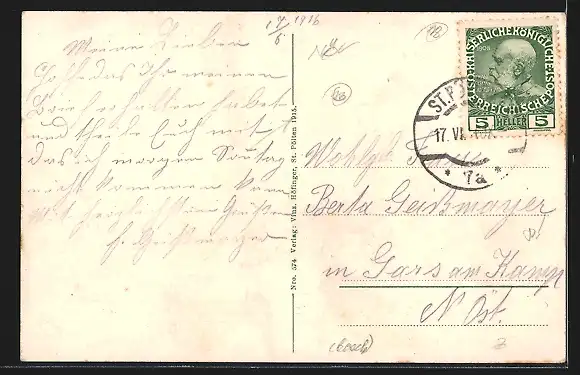 17/6 1916
Meine Lieben
Hoffe das Ihr meinen
Brief erhalten habet
und theile Euch mit
das ich morgen Sontag
nicht kommen kann
Mit herzlichsten Grüßen
Geißmayer
Nro. 574 Verlag: Vinz. Höfinger, St. Pölten 1915.
KAISERLICHE KÖNIGLICHE ÖSTERREICHISCHE
1908
5 HELLER 5
ST. P
17. VI.
* 7a *
Wohlgb. Frau
Berta Geißmayer
in Gars am Kamp
N. Öst.